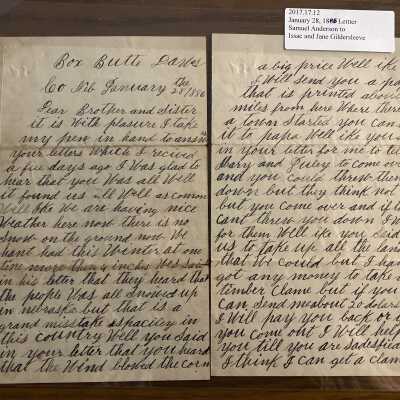 2017.17.12
January 28, 1886 Letter
Samuel Anderson to
Isaac and Jane Gildersleeve
Box Butte Daws
Co Neb January 28th/886
Dear Brother and Sister
it is With pleasure I take
my pen in hand to ans
your letters Which I recived
a few days ago I Was glad to
hear that you Was all Well
it found us all Well as common
Well Ike We are haveing nice
Weather here now there is no
Snow on the ground now We
hant had this Winter at one
time more then 4 inches Wes Said
in his letter that they heard that
the people Was all Snowed up
in nebraska but that is a
grand misstake aspacily in
this country Well you Said
in your letter that you heard
that the Wind blowed the corn
a big price Well Ike
I Will Send you a pa
that is printed about
miles from here Where there
a town Started you can
it to papa Well Ike you
in your letter for me to tel
Mary and to come over
and you could threw them
down but they think not
but you come over and if the
cant threw you down I W
for them Well Ike you Said
us to take up all the land
that We could but I han
got any money to take a
timber clame but if you
can Send me about 20 dolars
I Will pay you back or if
you come out I Will help
you till you are Sadesfied
I think I can get a clam